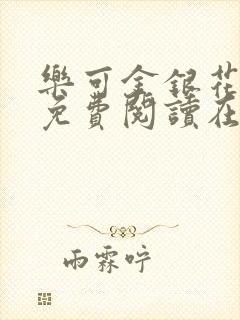 樂可金銀花
免費閱讀在
雨霖咛